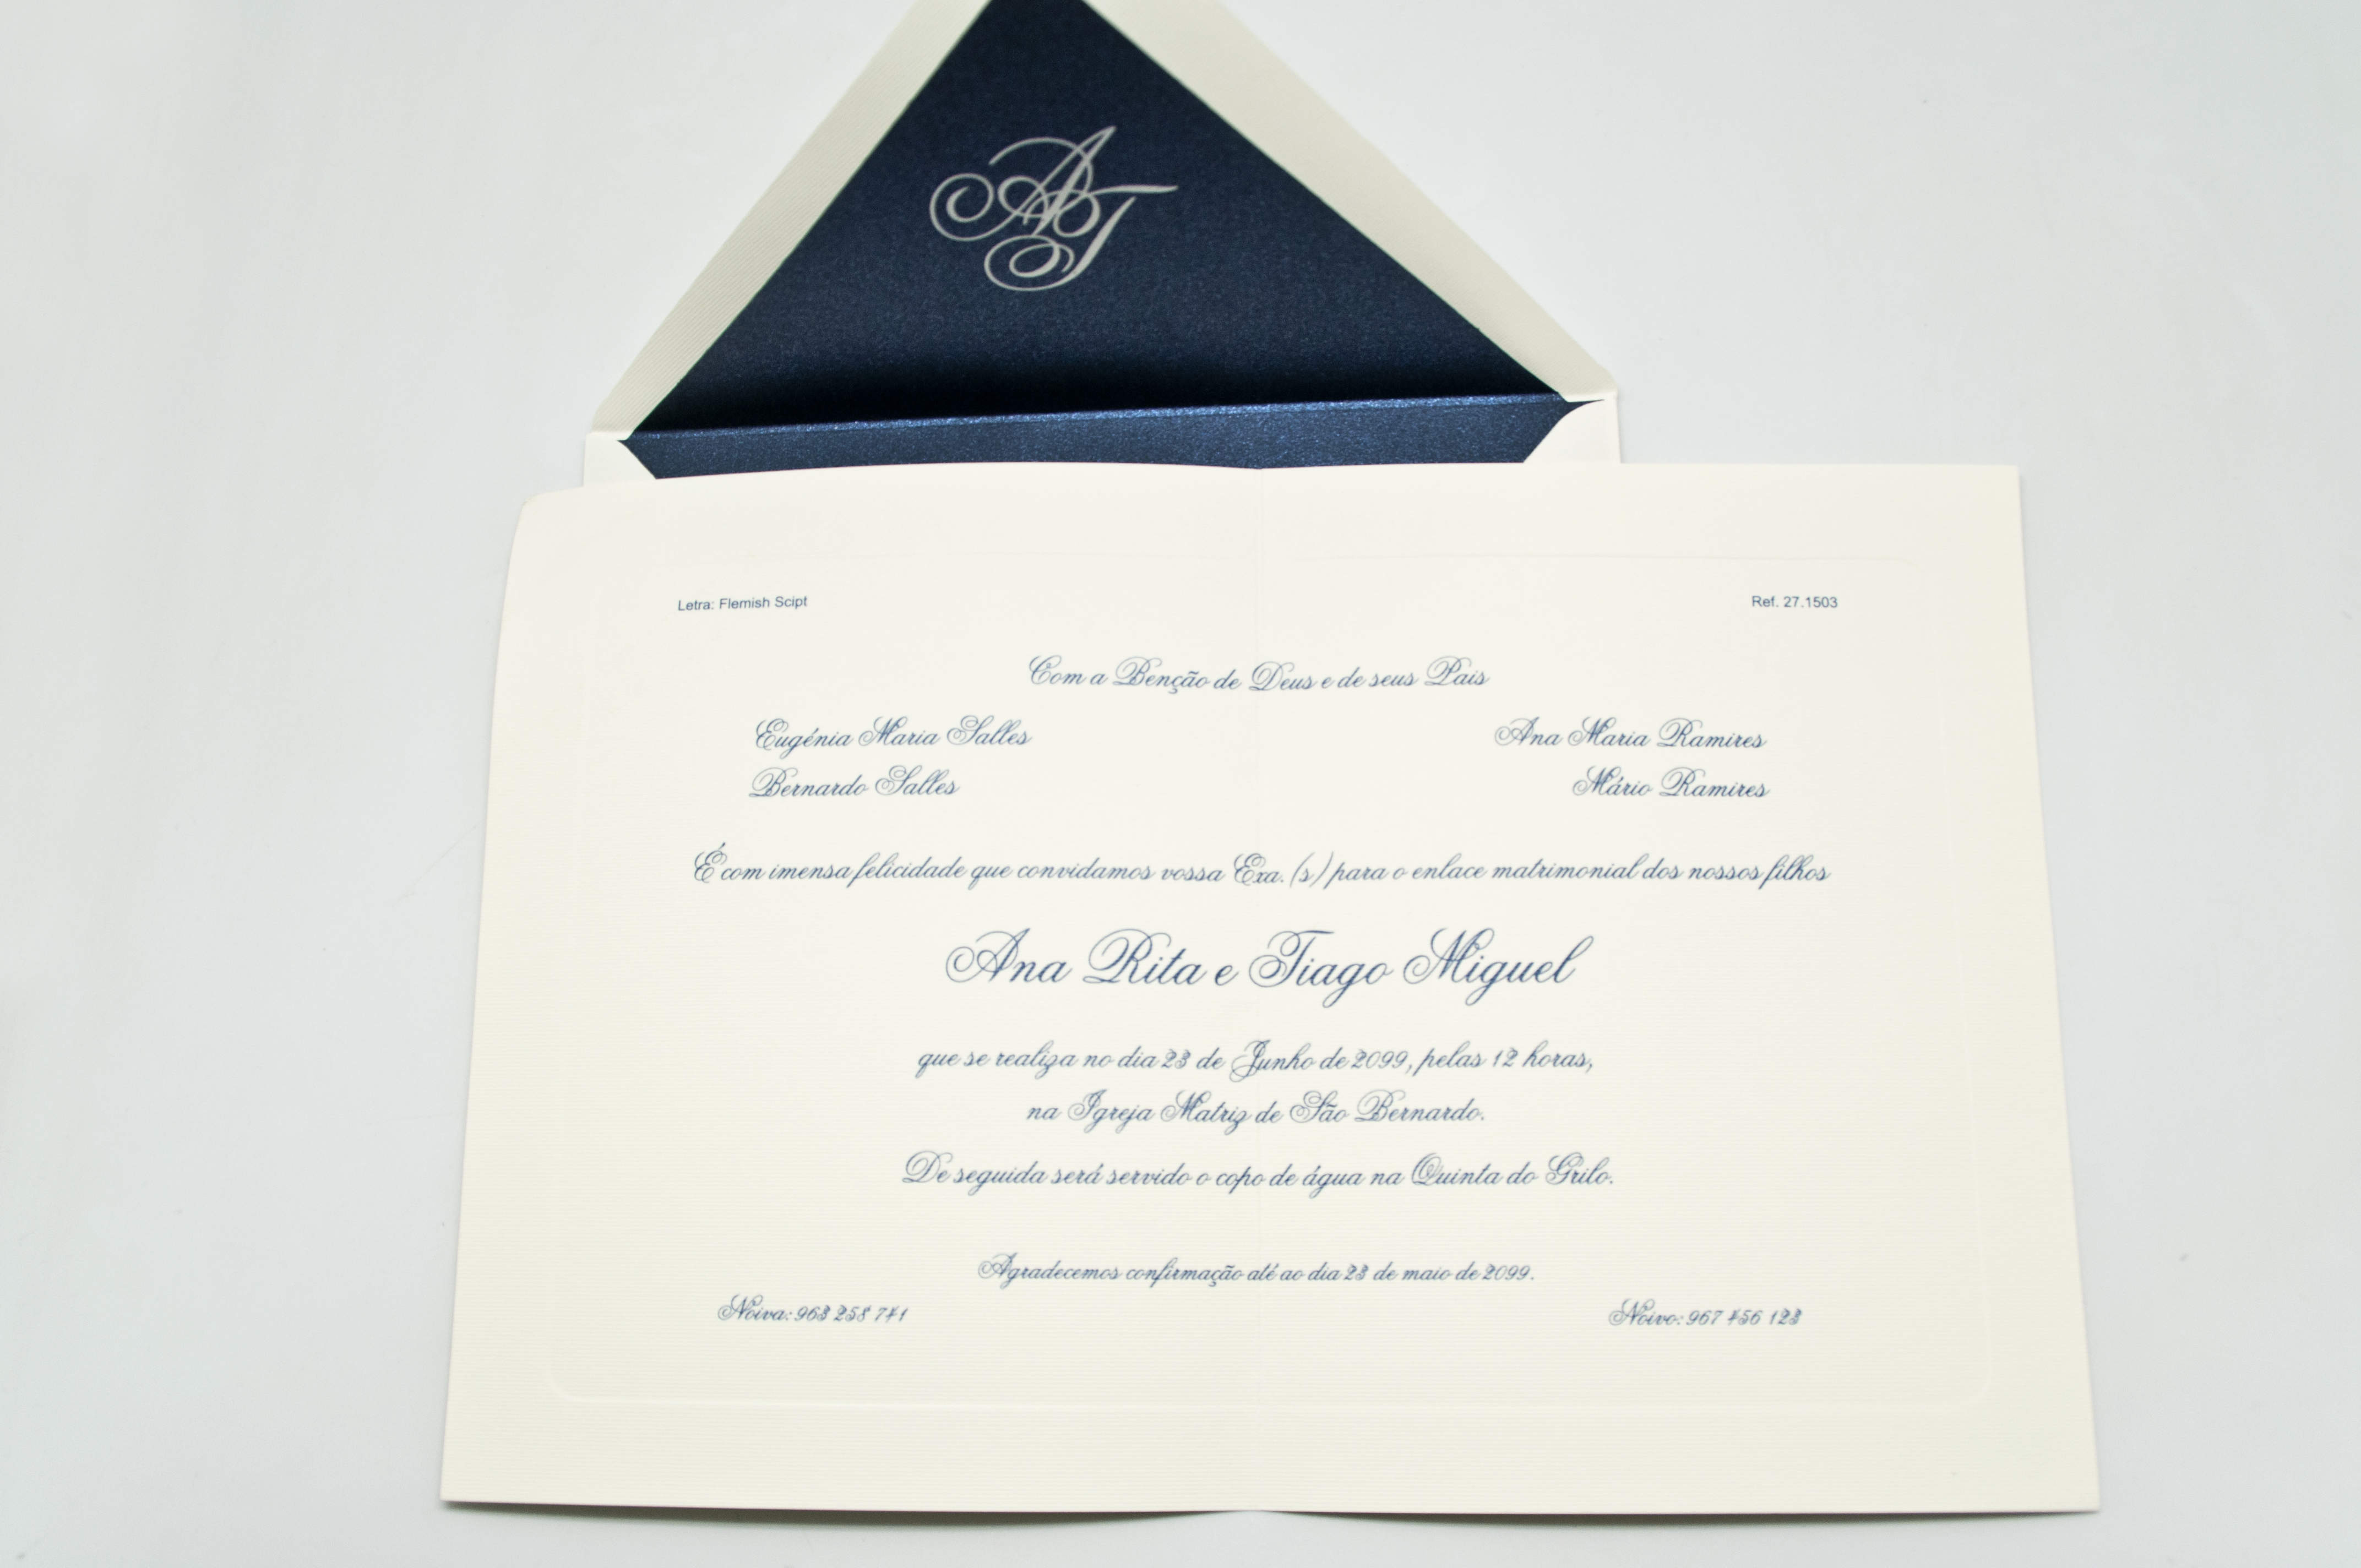 AT
Letra: Flemish Scipt
Ref. 27.1503
Com a Benção de Deus e de seus Pais
Eugénia Maria Salles
Bernardo Salles
Ana Maria Ramires
Mário Ramires
É com imensa felicidade que convidamos vossa Exa.(s) para o enlace matrimonial dos nossos filhos
Ana Rita e Tiago Miguel
que se realiza no dia 23 de Junho de 2099, pelas 12 horas,
na Igreja Matriz de São Bernardo.
De seguida será servido o copo de água na Quinta do Grilo.
Agradecemos confirmação até ao dia 23 de maio de 2099.
Noiva: 963 258 741
Noivo: 967 456 123